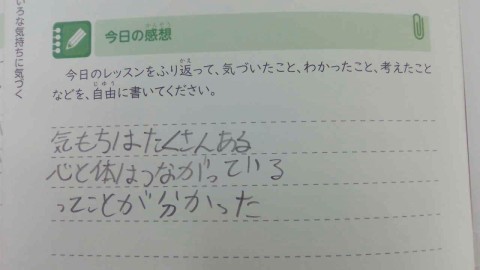 いろな気持ちに気づく
今日の感想
かんそう
今日のレッスンをふり返って、気づいたこと、わかったこと、考えたこと
かえ
などを、自由に書いてください。
じゆう
気もちはたくさんある
心と体はつながっている
ってことが分かった